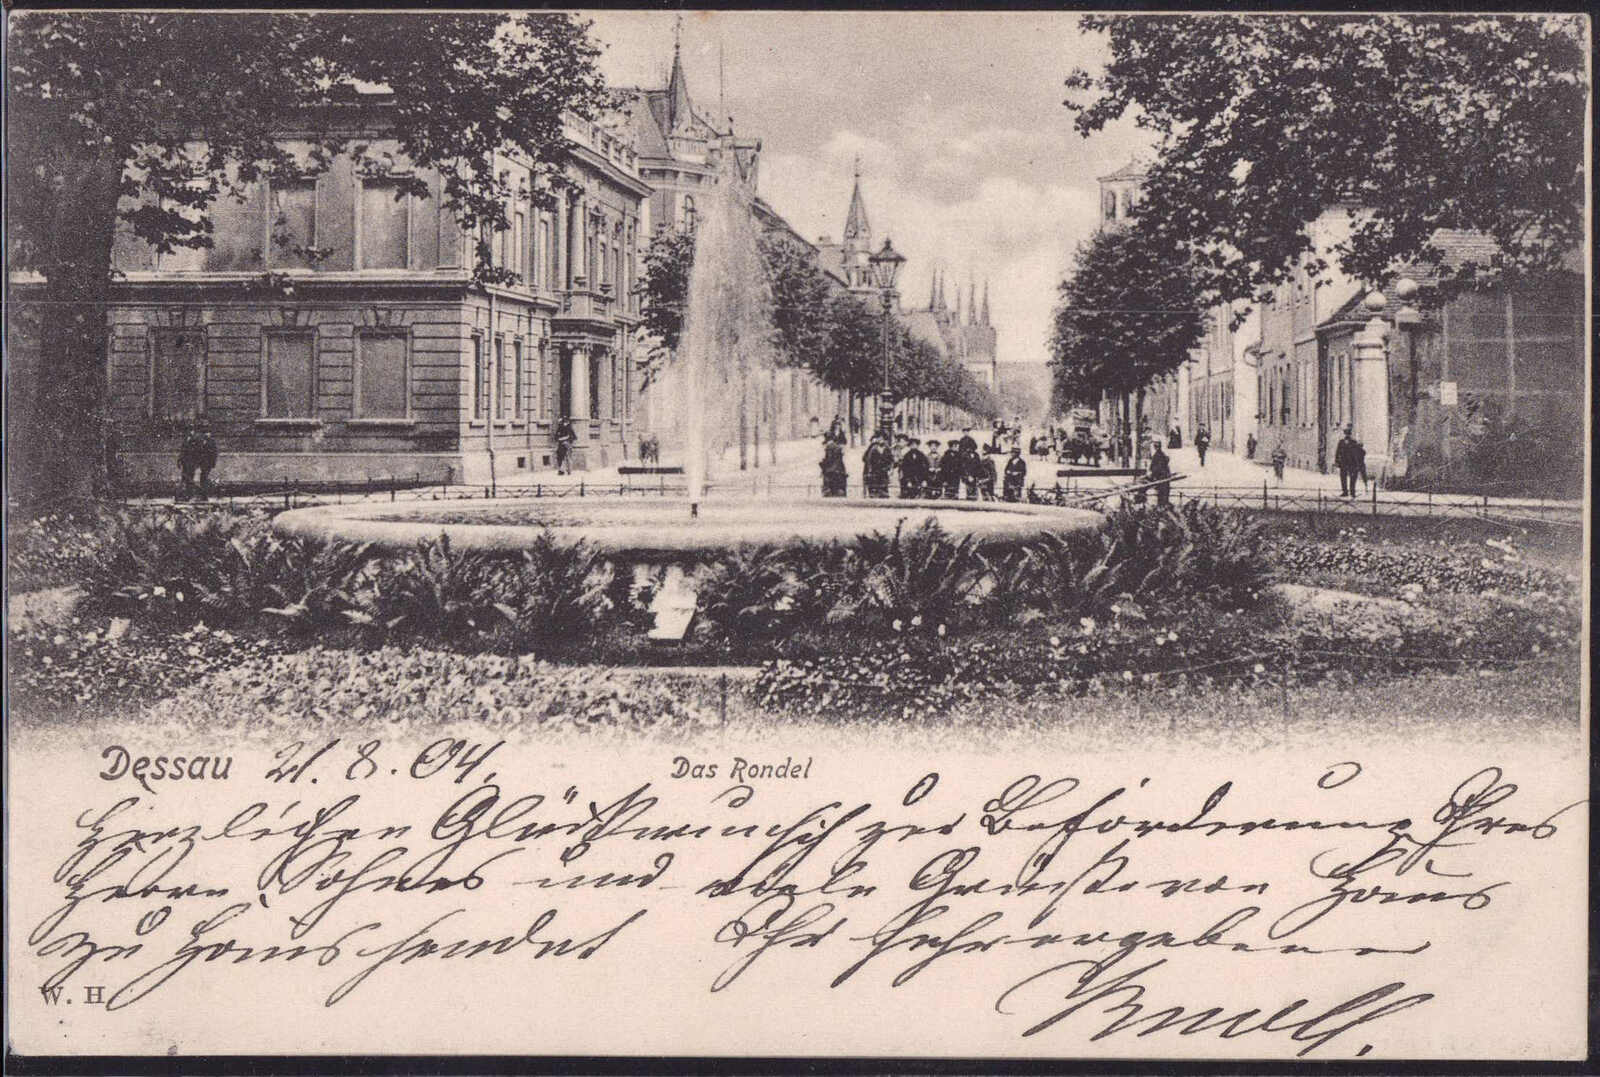 Dessau 21. 8. 04.
Das Rondel
Herzlichen Glückwunsch zur Beförderung Ihres
Herrn Sohnes und viele Grüße von Haus
zu Haus sendet Ihr sehr ergebener
W. H.